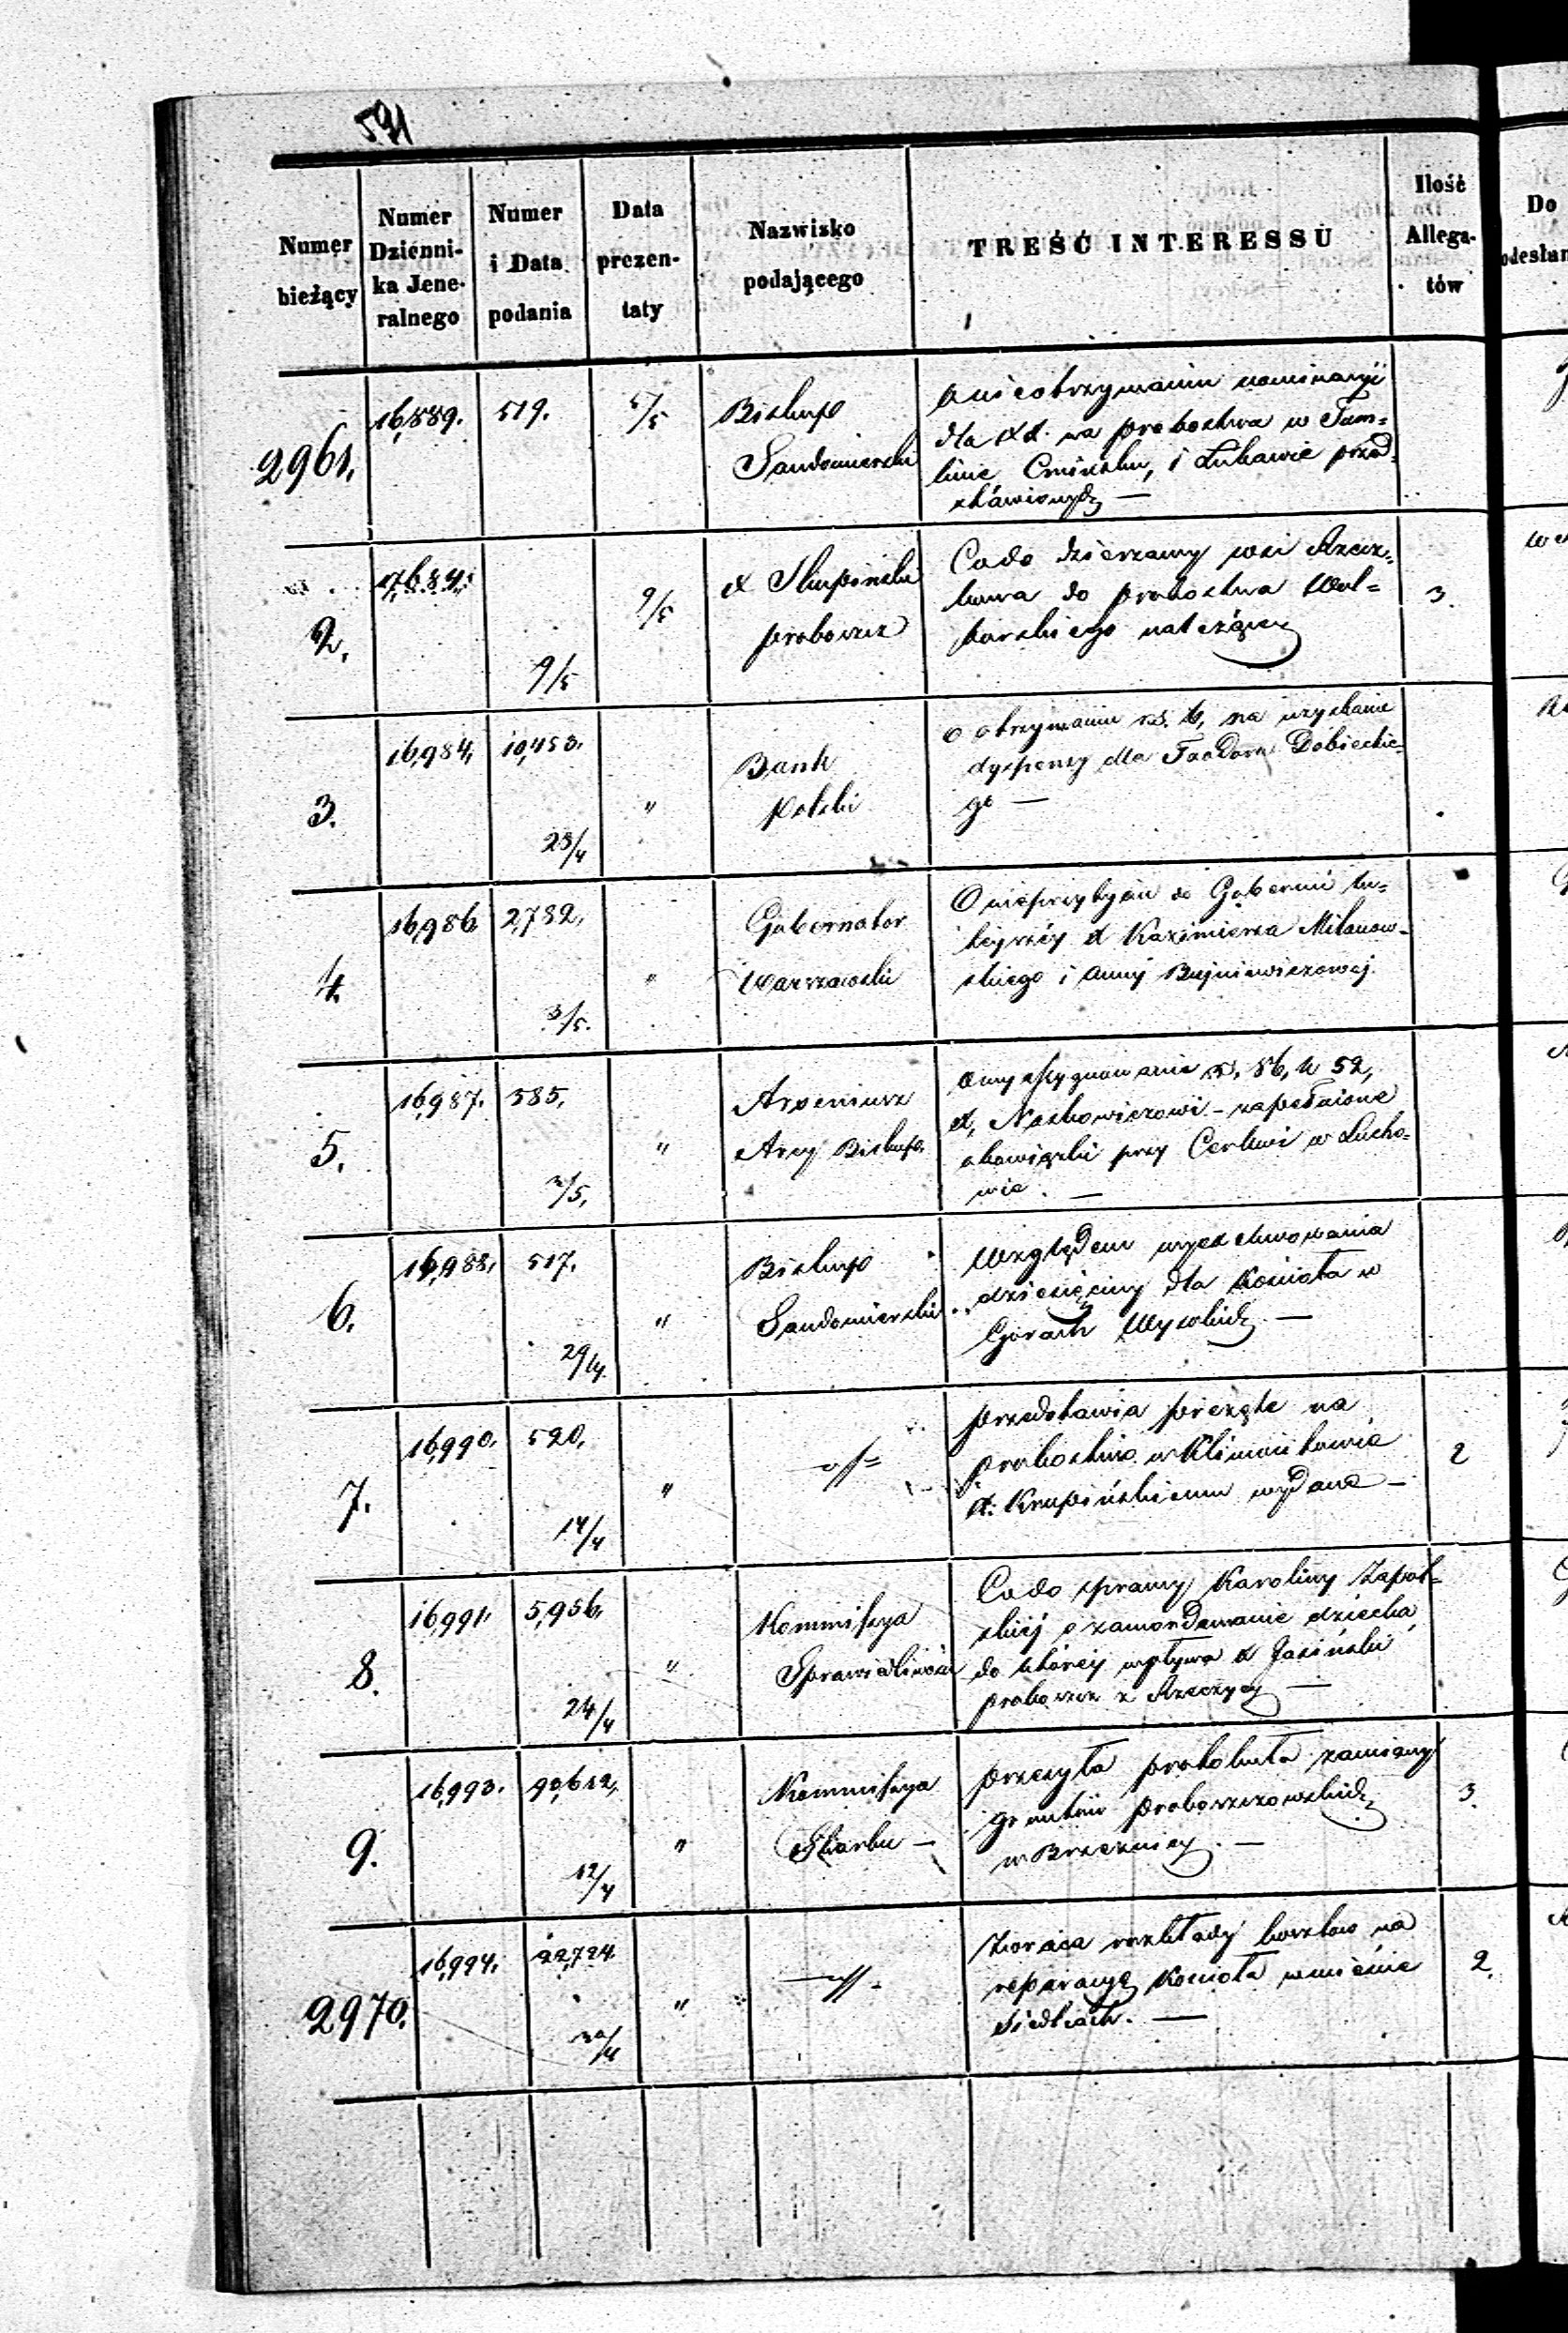 591
Numer bieżący
Numer Dzienni-ka Jene-ralnego
Numer i Data podania
Data prezen-taty
Nazwisko podającego
TREŚĆ INTERESSU
Ilość Allega-tów
Do odesłan
2961.
16,889.
519.
5/5
Biskup
Sandomierski
O nieotrzymaniu nominacyi
dla XX. na probostwa w Tum=
linie Cmińsku, i przed=
stawionych —
2.
9/5
9/5
X Słupiński
proboszcz
Co do dzierzawy wsi
do probostwa Wol=
borskiego należącej
3.
3.
16,984.
10,453.
23/4
"
Bank
Polski
o otrzymaniu rs. na uzyskanie
dyspensy dla Teodora Dobieckie=
go —
4.
16,986
2,782.
3/5.
"
Gubernator
Warszawski
O nieprzybyciu do Gubernii tu=
tejszéj X Kazimierza Milanow=
skiego i Anny Bujniewiczowej.
5.
16,987.
585.
2/5.
"
Arseniusz
Arcy Biskup.
O wyassygnowanie rs. 86, k 52,
X, Noskowiczowi – za pełnione
obowiązki przy Cerkwi w Lucho=
wie. —
6.
16,988.
517.
29/4.
"
Biskup
Sandomierski
Względem
dziesięciny dla Kościoła w
Górach Wysokich —
7.
16,990.
520.
14/4
"
przedstawia prezętę na
probostwo w Klimontowie
X. Krupińskiemu wydaną —
2
8.
16,991.
5,956.
24/4
"
Kommissya
Sprawiedliwości
Co do sprawy Karoliny Zapol=
skiéj o zamordowanie dziecka
do któréj wpływa X Jasiński
proboszcz z Rzeczycy —
9.
16,993.
90,612.
12/4
"
Kommissya
Skarbu —
przesyła protokuła zamiany
gruntów proboszczowskich
w Brzeznicy. —
3.
2970.
16,994.
22,724
30/4
"
Zwraca rozkłady kosztów na
reparacyę Kościoła w mieście
Siedlcach. —
2.